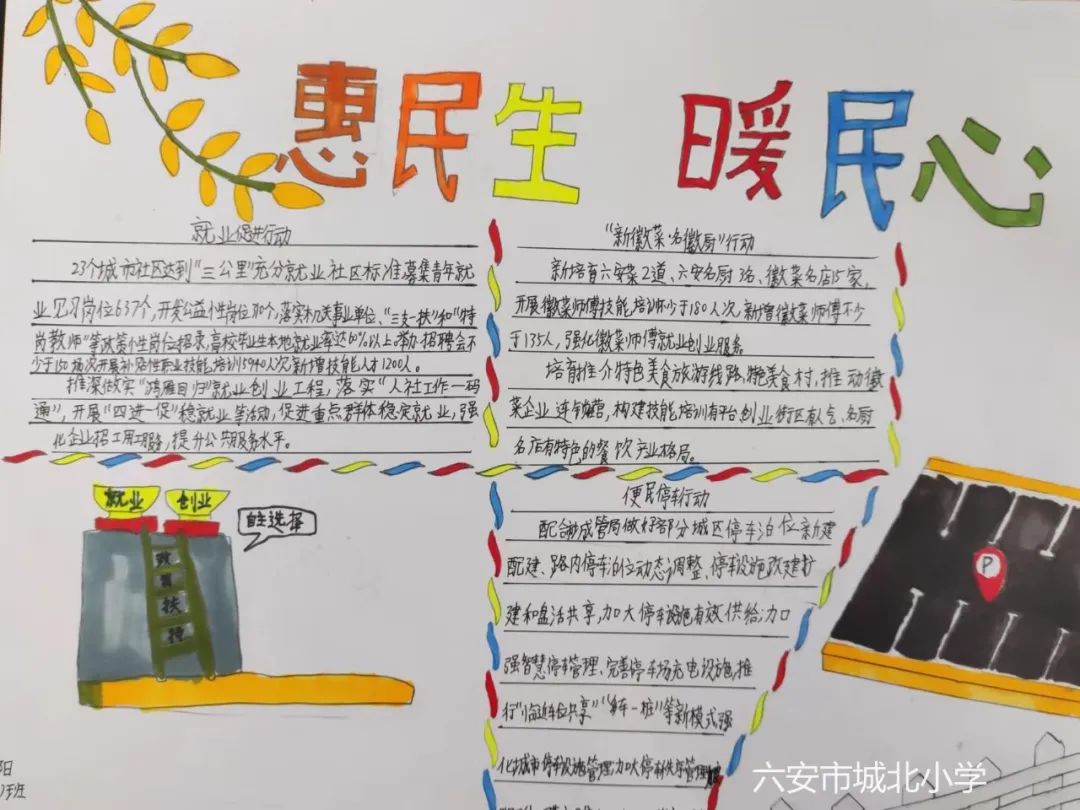 惠民生 暖民心
就业促进行动
23个城市社区达到“三公里”充分就业社区标准募集青年就
业见习岗位637个,开发公益性岗位 个,落实机关事业单位、“三支一扶”和“特
岗教师”等政策性岗位招录,高校毕业生本地就业率达80%以上。举办招聘会不
少于150场次开展补贴性职业技能培训15940人次新增技能人才1200人。
推深做实“鸿雁回归”就业创业工程,落实“人社工作一码
通”,开展“四进一促”稳就业等活动,促进重点群体稳定就业,强
化企业招工用工服务,提升公共服务水平。
“新徽菜·名徽厨”行动
新培育六安菜2道、六安名厨3名、徽菜名店15家,
开展徽菜师傅技能培训不少于180人次,新增徽菜师傅不少
于135人,强化徽菜师傅就业创业服务。
培育推介特色美食旅游线路,特色美食村,推动徽
菜企业连锁经营,构建技能培训有平台,创业街区有人气、名厨
名店有特色的餐饮产业格局。
就业
创业
自主选择
政
策
扶
持
便民停车行动
配合城管局做好部分城区停车泊位新建
配建、路内停车泊位动态调整、停车设施改建扩
建和盘活共享,加大停车设施有效供给;加
强智慧停车管理、完善停车场充电设施,推
行“临近车位共享”“多车一桩”等新模式强
化城市停车设施管理加大停车秩序管理
P
阳
班
六安市城北小学